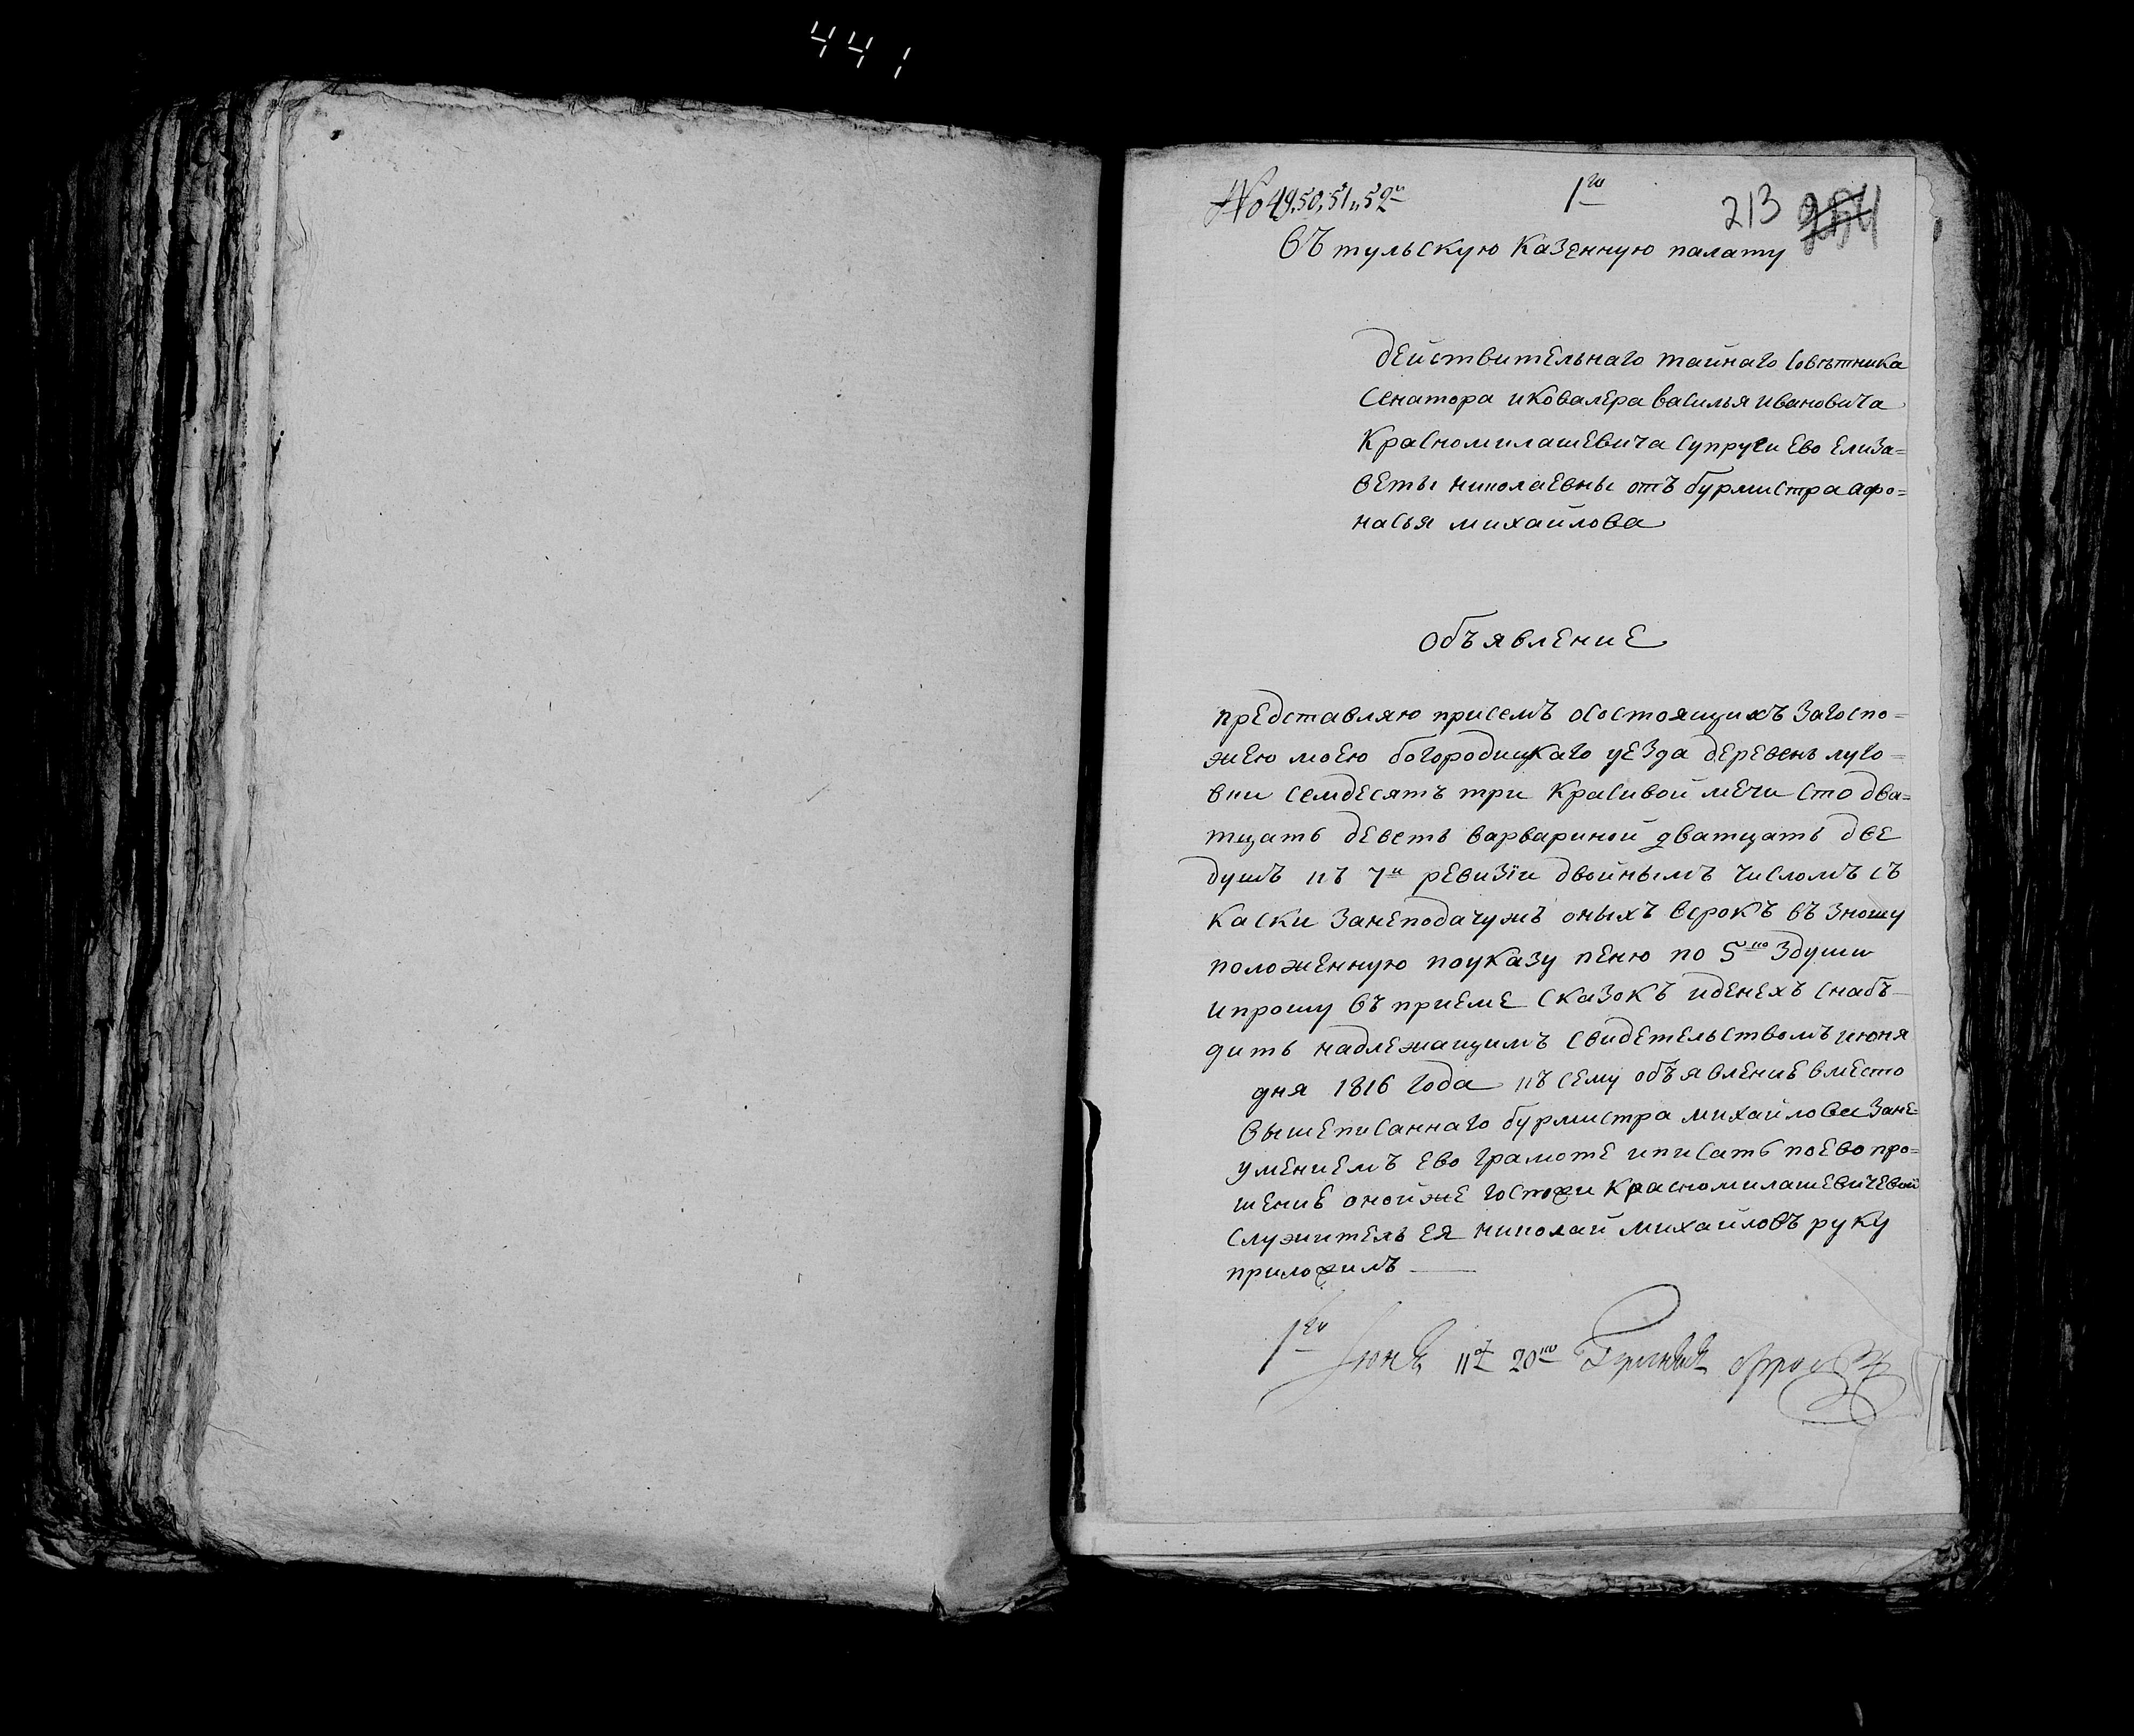 441
№ 49, 50, 51 и 52й
1го
213
въ тульскую казенную палату
действительнаго тайнаго совѣтника
сенатора иковалера василья ивановича
красномилашевича супруги ево елиза=
веты николаевны отъ бурмистра афо=
насья михайлова
объявление
представляю присемъ осостоящихъ загоспо=
жею моею богородицкаго уезда деревень луго=
вки семдесятъ три красивой мечи сто два=
тцать деветь варвариной дватцать две
душъ къ 7й ревизiи двойнымъ числомъ съ
каски занеподачужъ оныхъ всрокъ въ зношу
положенную поуказу пеню по 5то здуши
ипрошу въ приеме сказокъ иденехъ снабъ=
дить надлежащимъ свидетельствомъ июня
дня 1816 года къ сему объявление вместо
вышеписаннаго бурмистра михайлова зане=
умениемъ ево грамоте иписать поево про=
шение онойже госпожи красномилашевичевой
служитель ея николай михайловъ руку
приложилъ
1816 20го